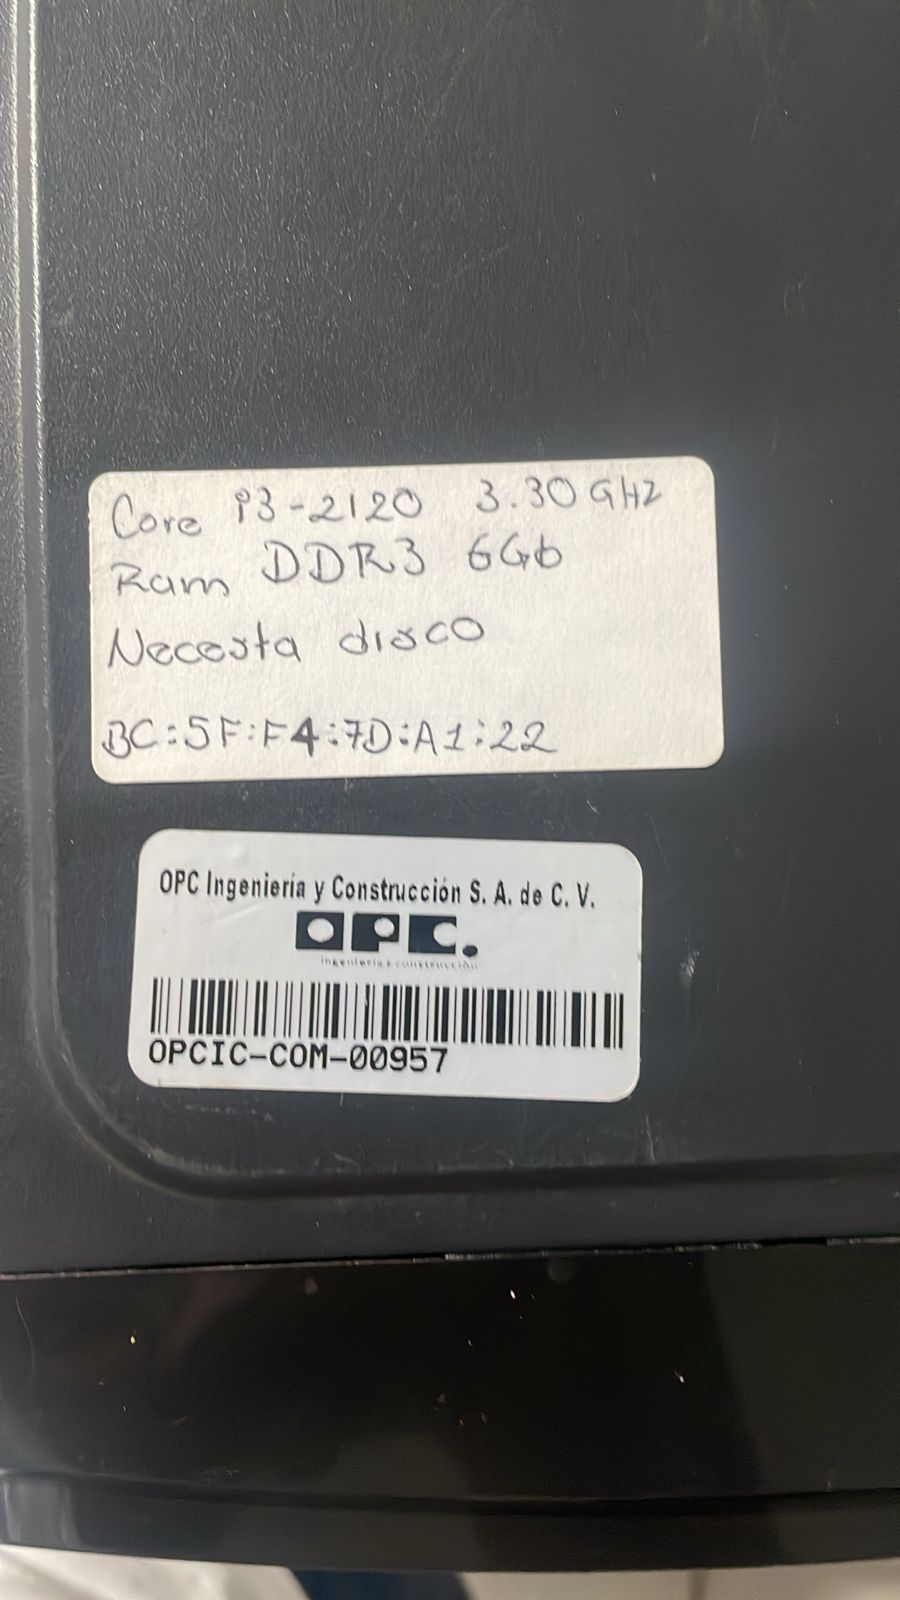 Core i3-2120 3.30 GHz
Ram DDR3 6Gb
Necesita disco
BC:5F:F4:7D:A1:22
OPC Ingeniería y Construcción S. A. de C. V.
OPC.
ingeniería & construcción
OPCIC-COM-00957